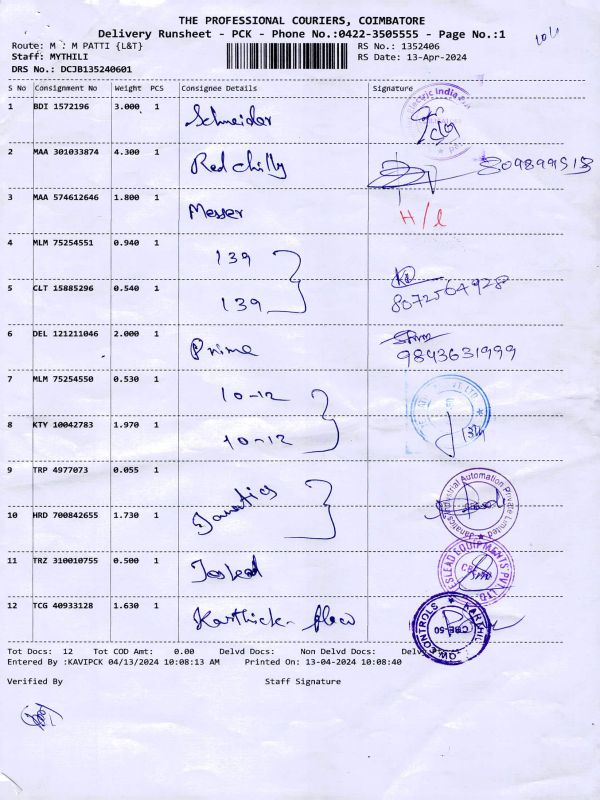 THE PROFESSIONAL COURIERS, COIMBATORE
Delivery Runsheet - PCK - Phone No.:0422-3505555 - Page No.:1
Route: M : M PATTI {L&T} RS No.: 1352406
Staff: MYTHILI RS Date: 13-Apr-2024
DRS No.: DCJB135240601
S No Consignment No Weight PCS Consignee Details Signature
1 BDI 1572196 3.000 1 Schneider
Electric India
2 MAA 301033874 4.300 1 Redchilly
3 MAA 574612646 1.800 1 Messer H/l
4 MLM 75254551 0.940 1 139
5 CLT 15885296 0.540 1 139 8072564928
6 DEL 121211046 2.000 1 Prime 9843631999
7 MLM 75254550 0.530 1 10-12
8 KTY 10042783 1.970 1 10-12
9 TRP 4977073 0.055 1 Janatics
Janatics Industrial Automation Private Limited
10 HRD 700842655 1.730 1
11 TRZ 310010755 0.500 1 Teslead
TESLEAD EQUIPMENTS PVT. LTD.
12 TCG 40933128 1.630 1 Karthick flow
Tot Docs: 12 Tot COD Amt: 0.00 Delvd Docs: Non Delvd Docs:
Entered By :KAVIPCK 04/13/2024 10:08:13 AM Printed On: 13-04-2024 10:08:40
Verified By Staff Signature